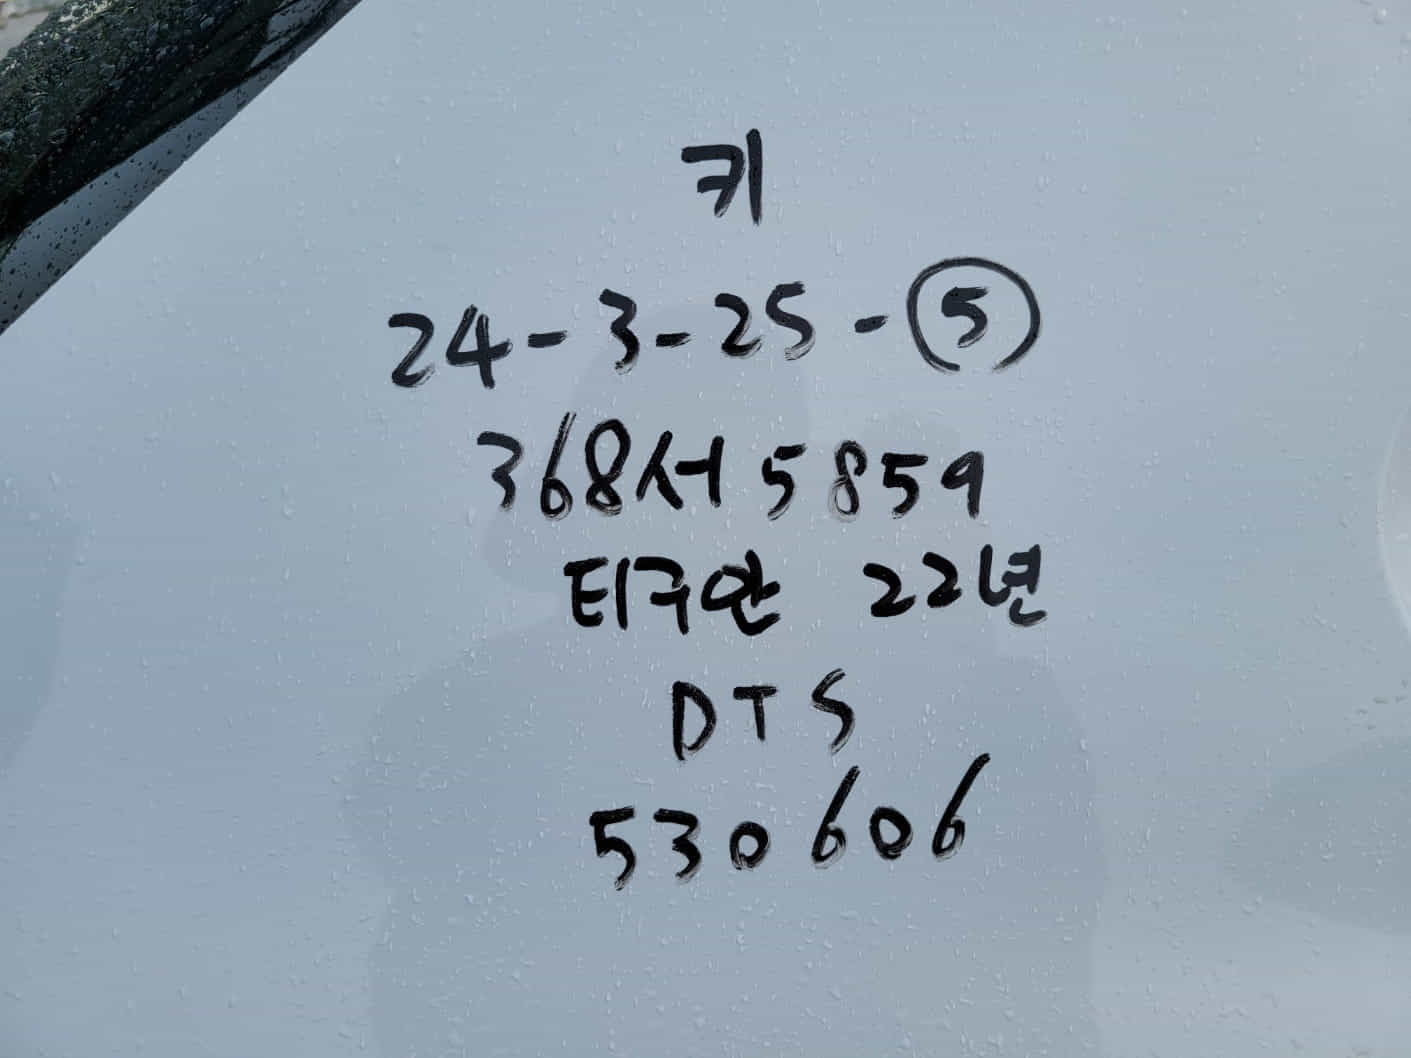 키
24-3-25-⑤
368서 5859
티구안 22년
DTS
530606